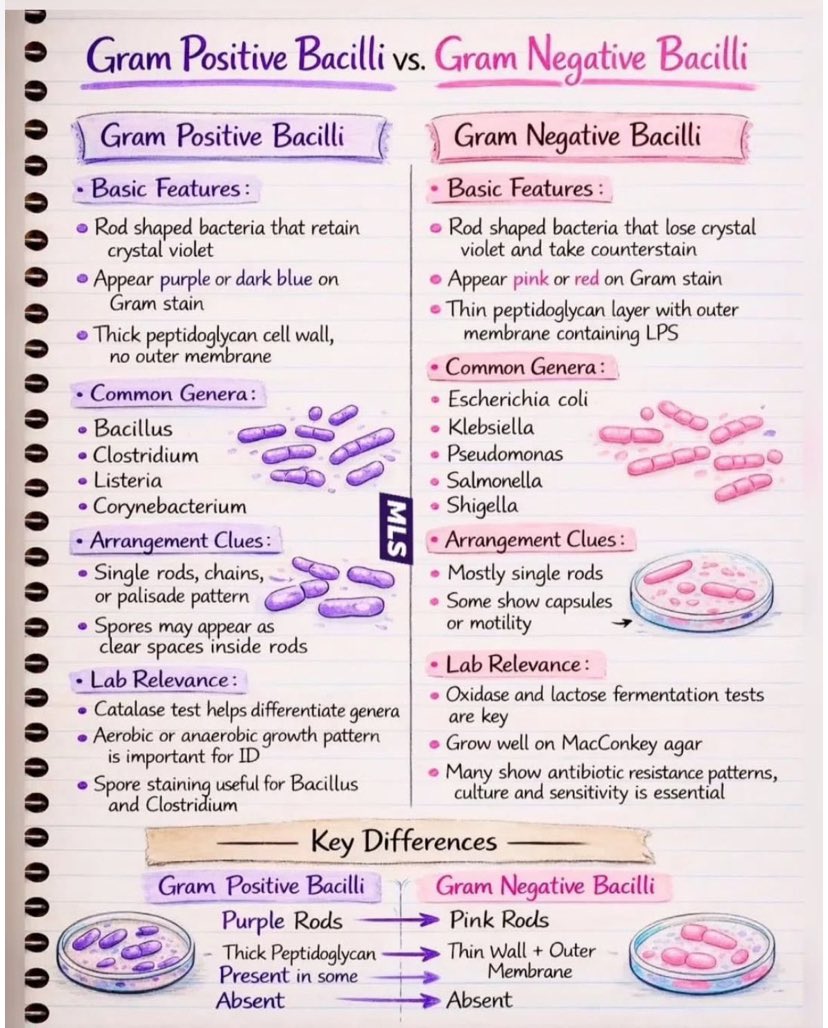 Gram Positive Bacilli vs. Gram Negative Bacilli
Gram Positive Bacilli
• Basic Features:
• Rod shaped bacteria that retain
crystal violet
• Appear purple or dark blue on
Gram stain
• Thick peptidoglycan cell wall,
no outer membrane
• Common Genera:
• Bacillus
• Clostridium
• Listeria
• Corynebacterium
• Arrangement Clues:
• Single rods, chains,
or palisade pattern
• Spores may appear as
clear spaces inside rods
• Lab Relevance:
• Catalase test helps differentiate genera
• Aerobic or anaerobic growth pattern
is important for ID
• Spore staining useful for Bacillus
and Clostridium
MLS
Gram Negative Bacilli
• Basic Features:
• Rod shaped bacteria that lose crystal
violet and take counterstain
• Appear pink or red on Gram stain
• Thin peptidoglycan layer with outer
membrane containing LPS
• Common Genera:
• Escherichia coli
• Klebsiella
• Pseudomonas
• Salmonella
• Shigella
• Arrangement Clues:
• Mostly single rods
• Some show capsules
or motility
• Lab Relevance:
• Oxidase and lactose fermentation tests
are key
• Grow well on MacConkey agar
• Many show antibiotic resistance patterns,
culture and sensitivity is essential
Key Differences
Gram Positive Bacilli
Gram Negative Bacilli
Purple Rods → Pink Rods
Thick Peptidoglycan → Thin Wall + Outer
Membrane
Present in some →
Absent → Absent